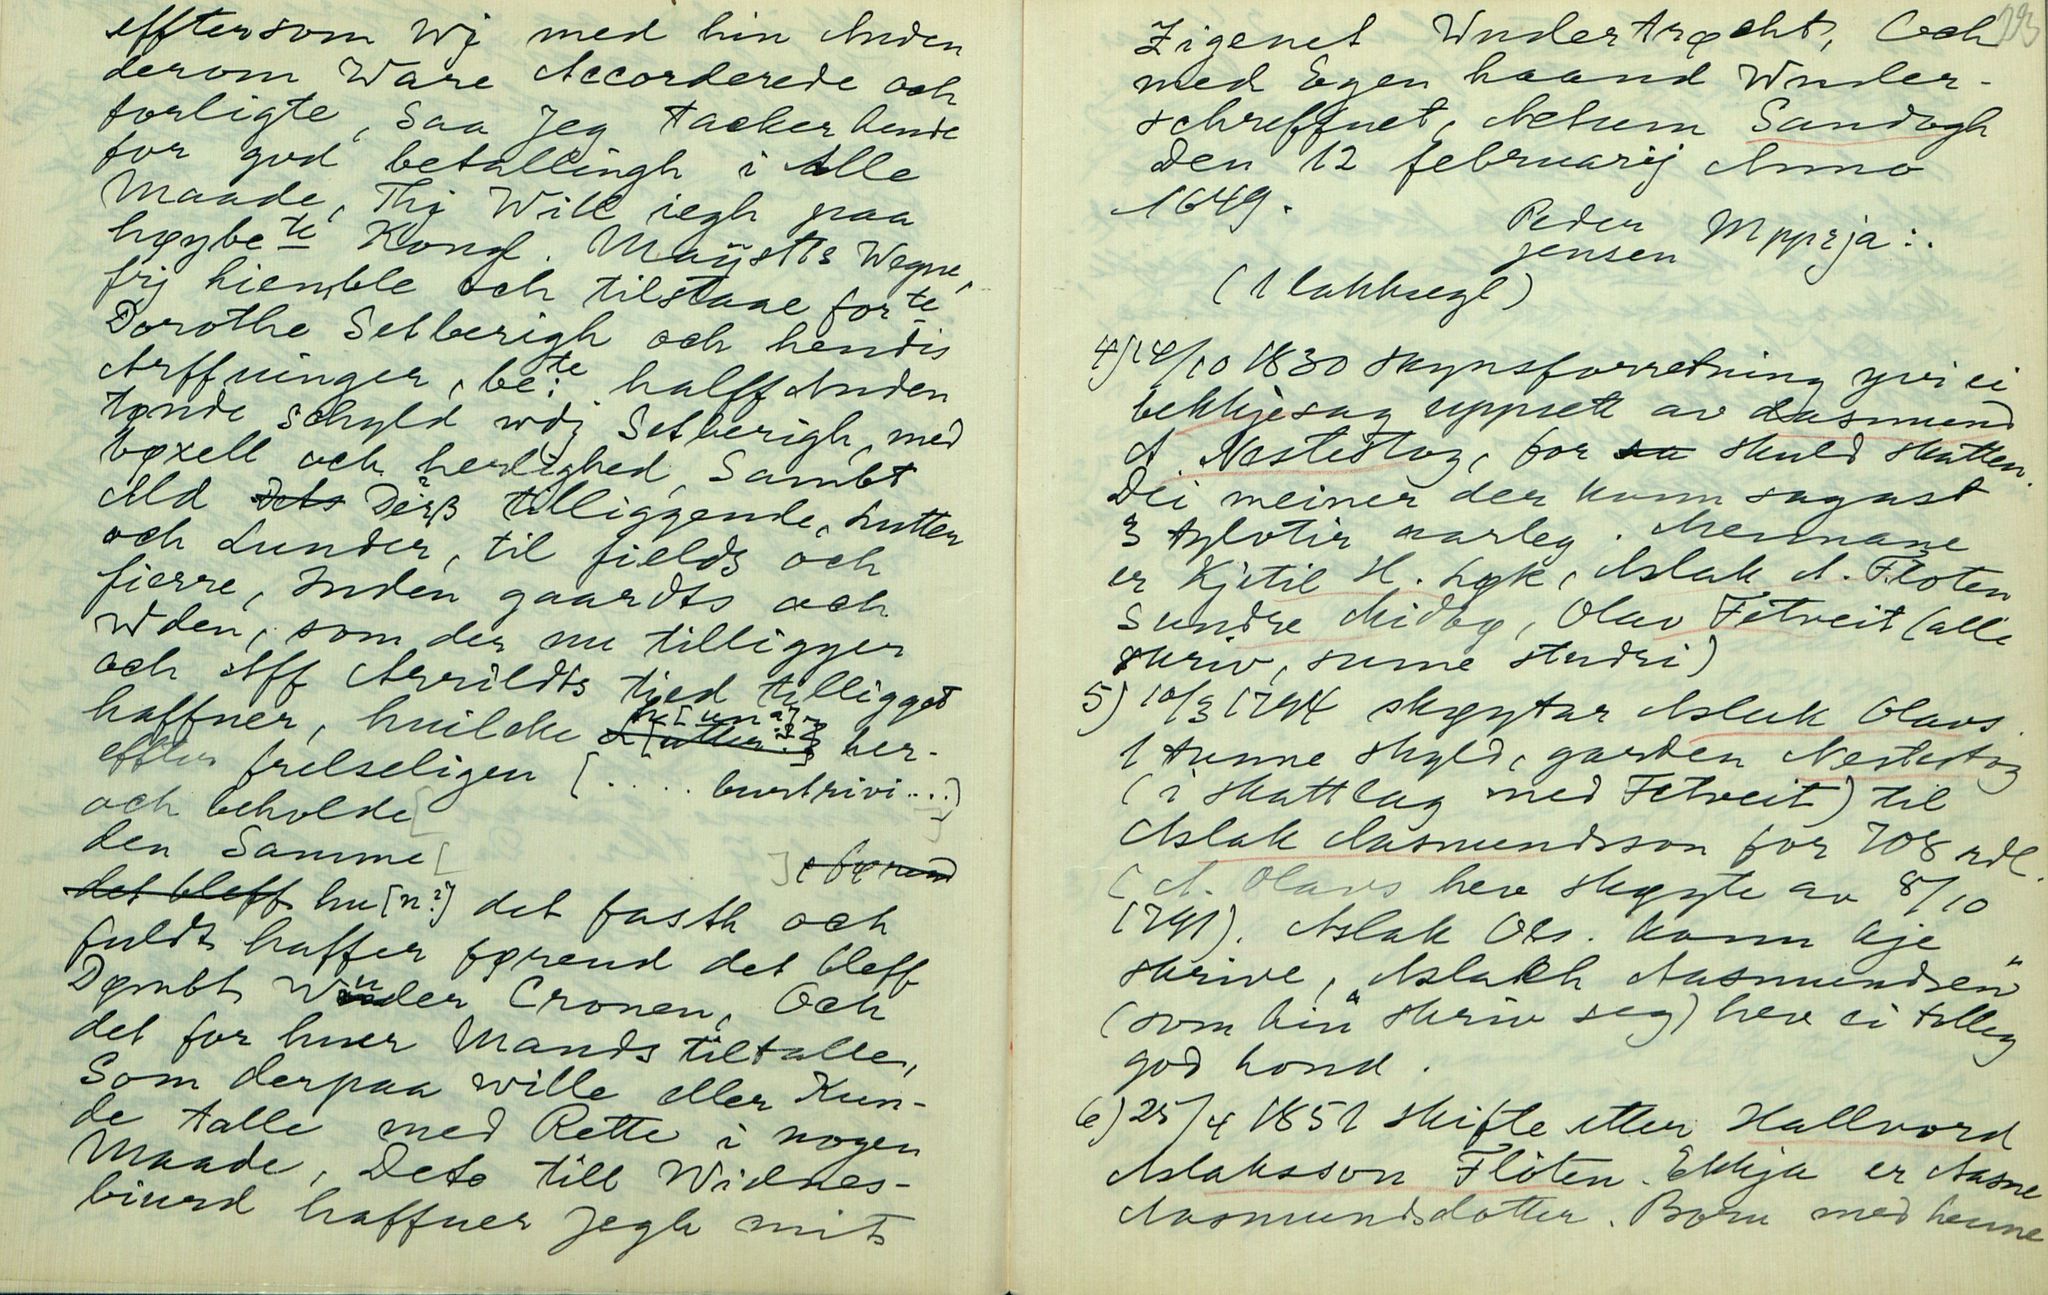 efftersom Wj med hin Anden
derom Ware Accorderede och
forligte, Saa Jeg tacker hende
for god betallingh i Alle
Maade, Thj Will iegh paa
høybe te Kong. Maÿstts Wegne,
frj hiemble och tilstaae for te
Dorothe Setberigh och hendis
Arffuinger, be: te halff Anden
tønde schyld wdj Setberigh, med
bøxell och herlighed, Sambt
Ald Dets Derß tilliggende, Lutter
och Lunder, til fields och
fierre, Inden gaardts och
Wden, som der nu tilligger
och Aff Arrildts tjed tilligget
haffuer, huilcke h[un?] her-
effter frelseligen [..... burtrivi...]
och beholde [
den Samme [ ] førend
det bleff hu[n?] det fasth och
fuldt haffer førend det bleff
Dømbt Wnder Cronen, Och
det for huer Mands tiltalle,
Som derpaa wille eller Kun-
de talle med Rette i nogen
Maade, Dets till Widnes-
biurd haffuer Jegh mit
193
Zigenet WnderTrøcht, Och
med Egen haand Wnder-
schreffuet, Actum Sandøgh
Den 12 februarij Anno
1649.
Peder
Jensen Mppria:.
(1 lakksegl)
4) 14/10 1830 skynsforretning yvi ei
bekkjesag uppsett av Aasmund
A. Nestestog, for sa skuld skatten.
Dei meiner der kann sagast
3 tylvtir aarleg. Mennane
er Kjetil H. Løk, Aslak A. Flóten
Sundre Midbø, Olav Fetveit (alle
skriv, sume studri)
5) 10/3 1794 skøytar Aslak Olavs.
1 tunne skyld, garden Nestestog
(i skattlag med Fetveit) til
Aslak Aasmundsson for 708 rdl.
(A. Olavs heve skøyte av 8/10
1791). Aslak Ols. kann kje
skrive, "Aslakh Aasmundsen"
(som hin skriv seg) heve ei tolleg
god hond.
6) 25/4 1851 skifte etter Hallvord
Aslaksson Flóten. Ekkja er Aasne
Aasmundsdotter. Born med henne